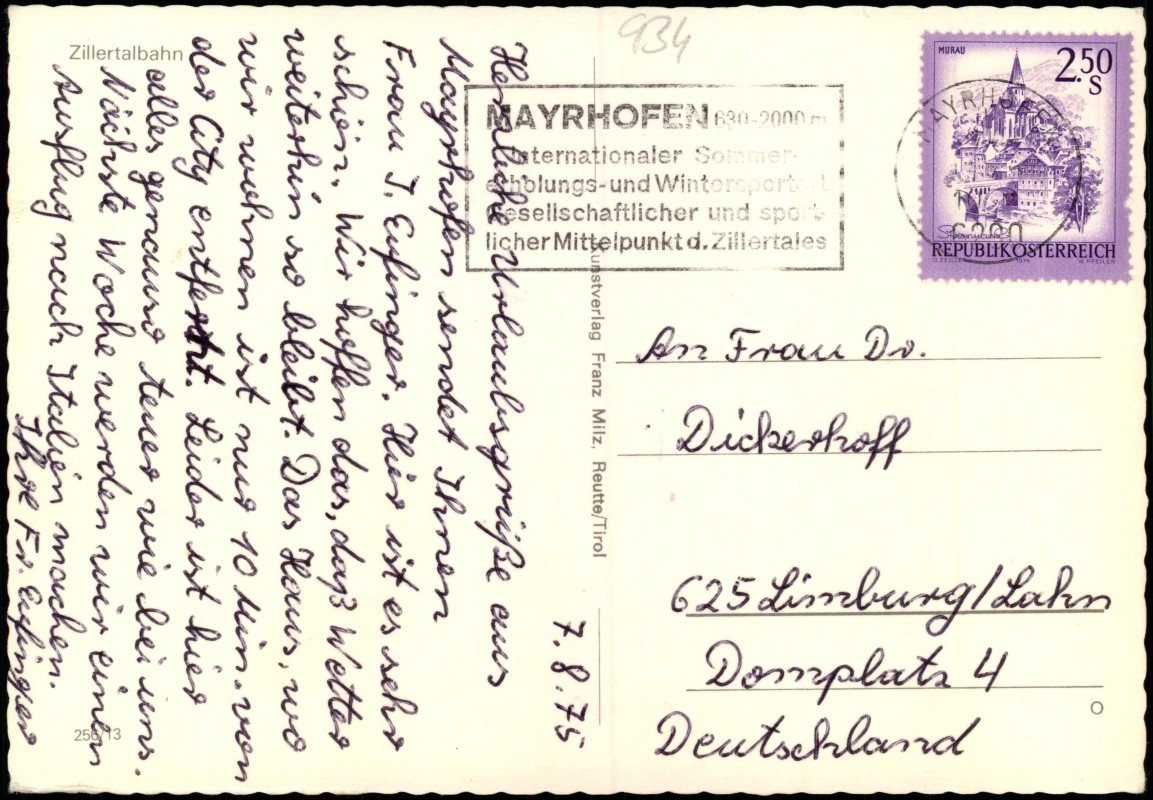 Zillertalbahn
934
7.8.75
Herzliche Urlaubsgrüße aus
Mayrhofen sendet Ihnen
Frau J. Eufinger. Hier ist es sehr
schön. Wir hoffen das, daß Wetter
weiterhin so bleibt. Das Haus, wo
wir wohnen ist nur 10 Min. von
der City entfernt. Leider ist hier
alles genauso teuer wie bei uns.
Nächste Woche werden wir einen
Ausflug nach Italien machen.
Ihre Fr. Eufinger
256/13
Kunstverlag Franz Milz, Reutte/Tirol
MAYRHOFEN 630-2000 m
Internationaler Sommer-
erholungs- und Wintersportort
Gesellschaftlicher und sport-
licher Mittelpunkt d. Zillertales
MURAU
2.50
S
MAYRHOFEN
6290
REPUBLIK ÖSTERREICH
An Frau Dr.
Dickerhoff
625 Limburg/Lahn
Domplatz 4
Deutschland